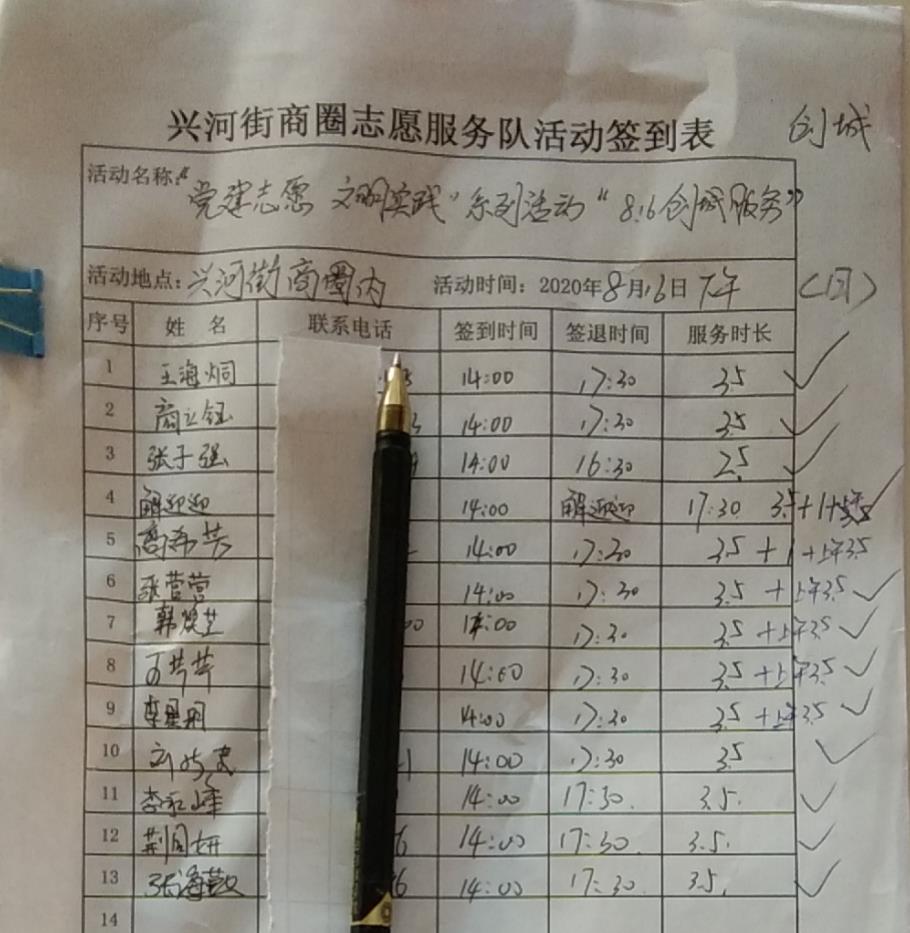 兴河街商圈志愿服务队活动签到表 创城
活动名称:“党建志愿 文明实践”系列活动“8.16创城服务”
活动地点:兴河街商圈内 活动时间:2020年8月16日 下午 (日)
序号 姓 名 联系电话 签到时间 签退时间 服务时长
1 王海炯 14:00 17:30 3.5 ✓
2 商立钰 14:00 17:30 3.5 ✓
3 张子强 14:00 16:30 2.5 ✓
4 解迎迎 14:00 解迎迎 17:30 3.5+1+ ✓
5 14:00 17:30 3.5+1+上午3.5
6 张营营 14:00 17:30 3.5+上午3.5 ✓
7 韩 14:00 17:30 3.5+上午3.5 ✓
8 14:00 17:30 3.5+上午3.5 ✓
9 李 14:00 17:30 3.5+上午3.5 ✓
10 刘 14:00 17:30 3.5 ✓
11 李红峰 14:00 17:30. 3.5. ✓
12 荆同妍 6 14:00 17:30. 3.5. ✓
13 张海 6 14:00 17:30. 3.5. ✓
14